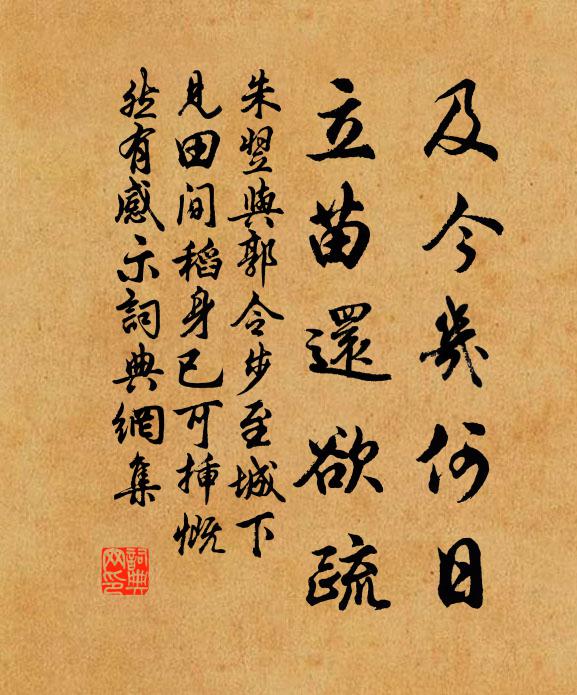 及今幾何日
立苗還欲疏
朱翌與郭令步至城下
見田間稻身已可插慨
然有感示詞典網集
詞典網印